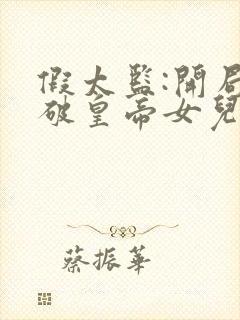 假太監:開局
破皇帝女兒
蔡振華